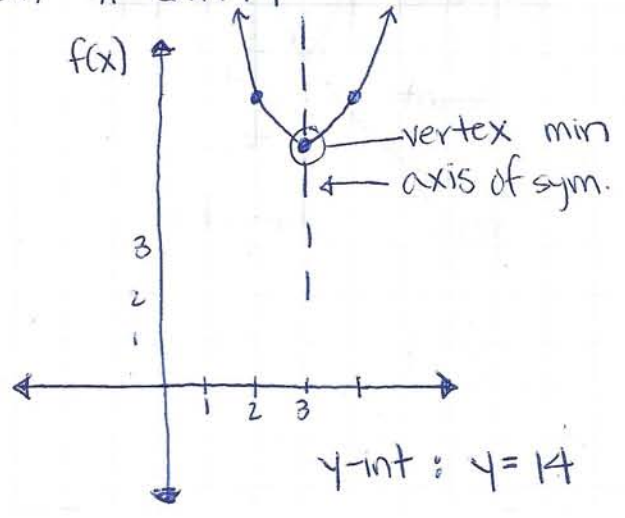 f(x)
vertex min
axis of sym.
3
2
1
1 2 3
y-int : y = 14